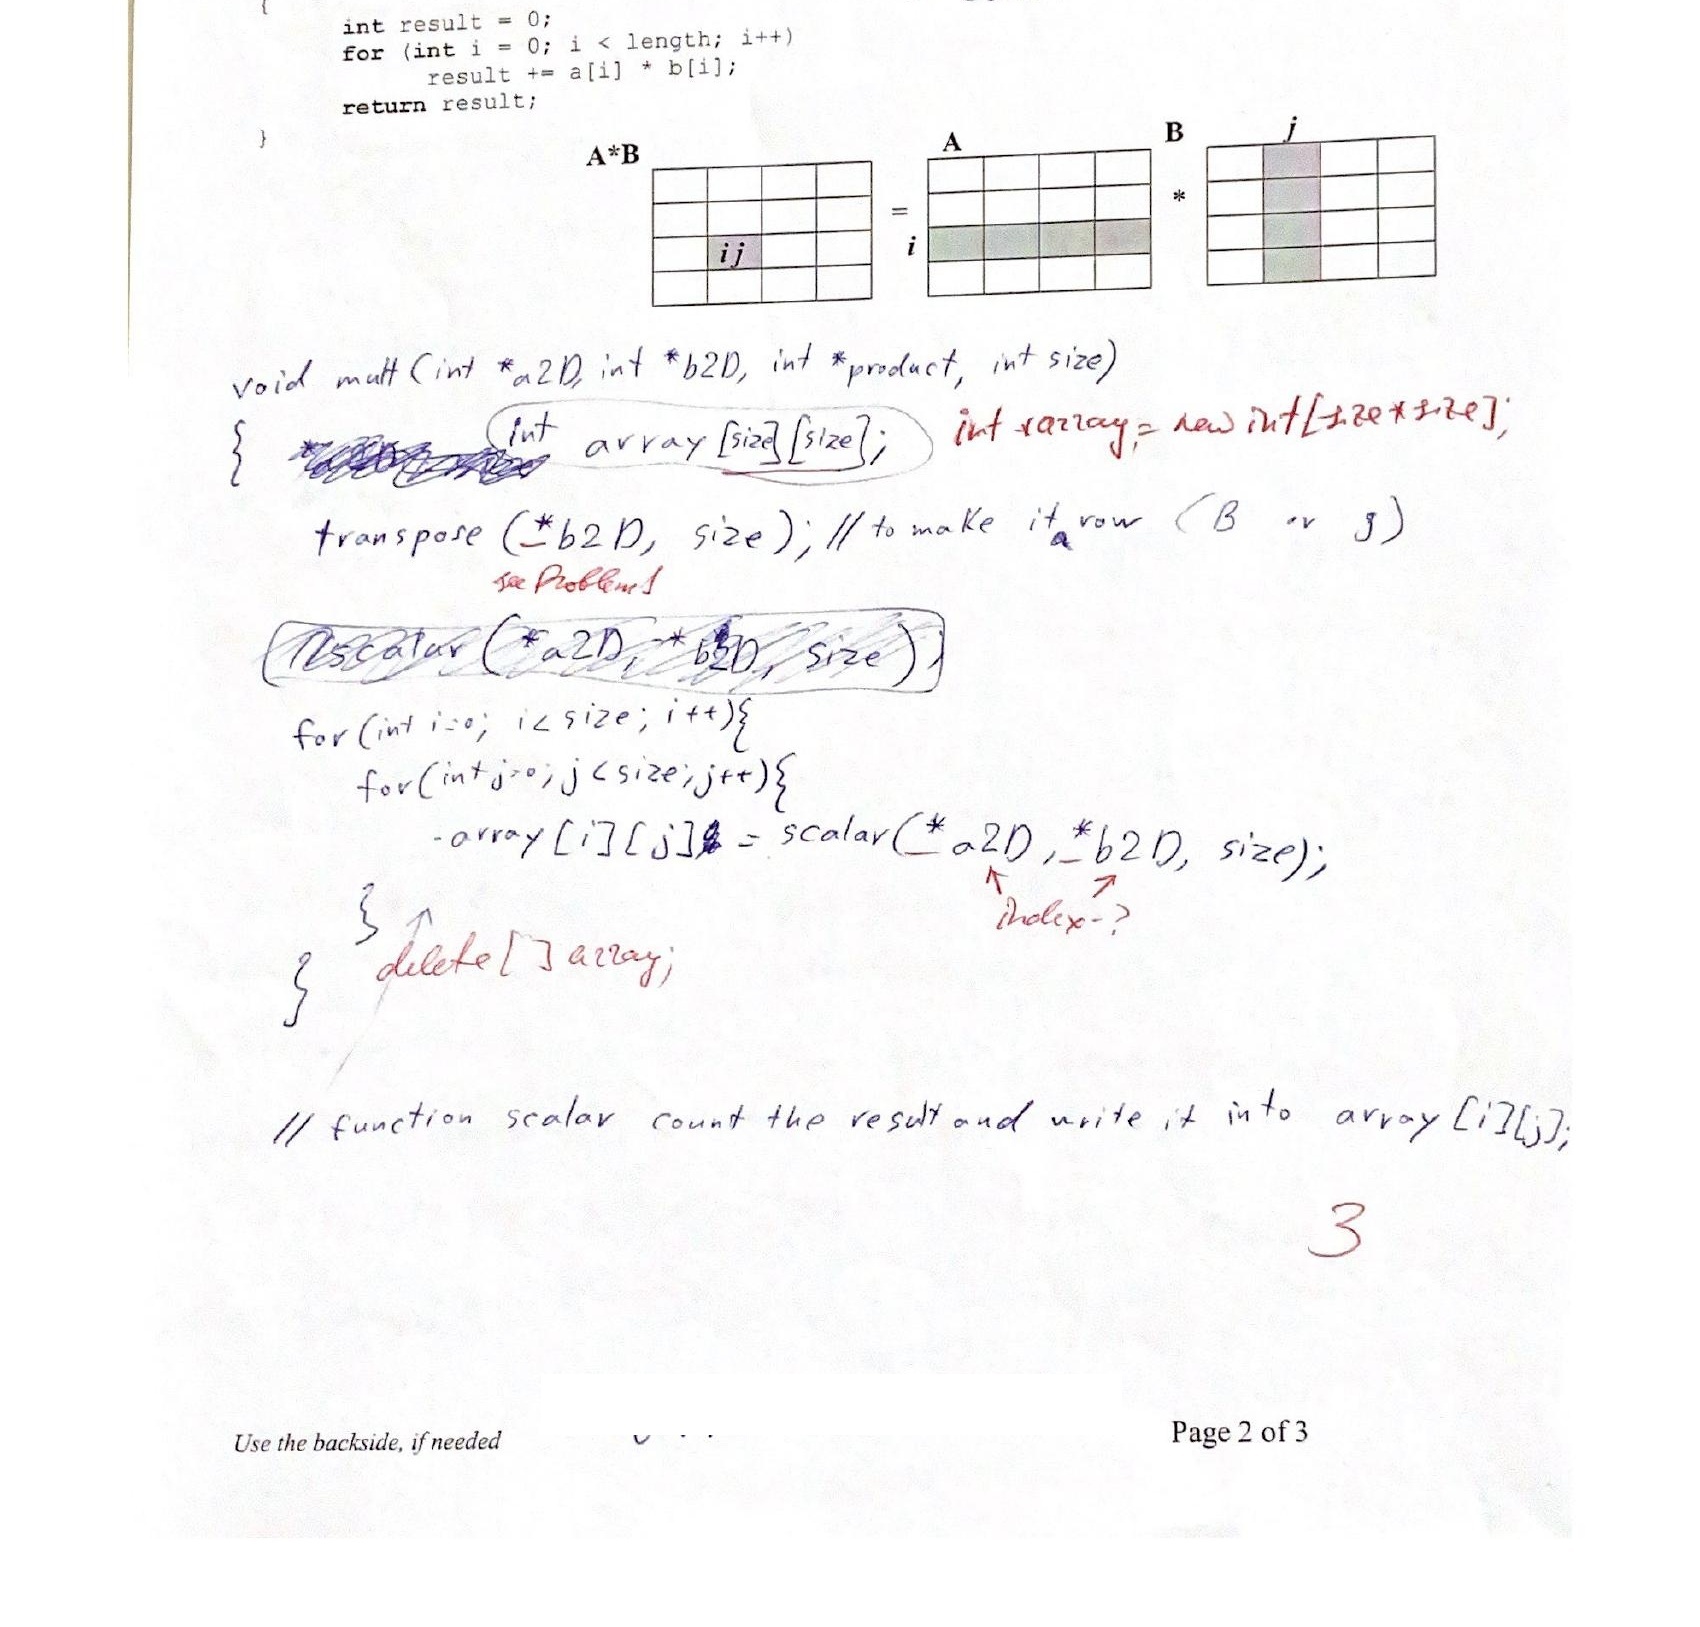 {
int result = 0;
for (int i = 0; i < length; i++)
result += a[i] * b[i];
return result;
}
A*B
A
B
j
=
*
i
ij
void mult (int *a2D, int *b2D, int *product, int size)
{ int array [size][size]; int *array = new int[size*size];
transpose (*b2D, size); // to make it a row (B or j)
see Problem 1
scalar (*a2D, *b2D, size);
for (int i=0; i<size; i++){
for (int j=0; j<size; j++){
array [i][j] = scalar(*a2D, *b2D, size);
index-?
}
delete[] array;
}
// function scalar count the result and write it into array [i][j];
3
Use the backside, if needed
Page 2 of 3